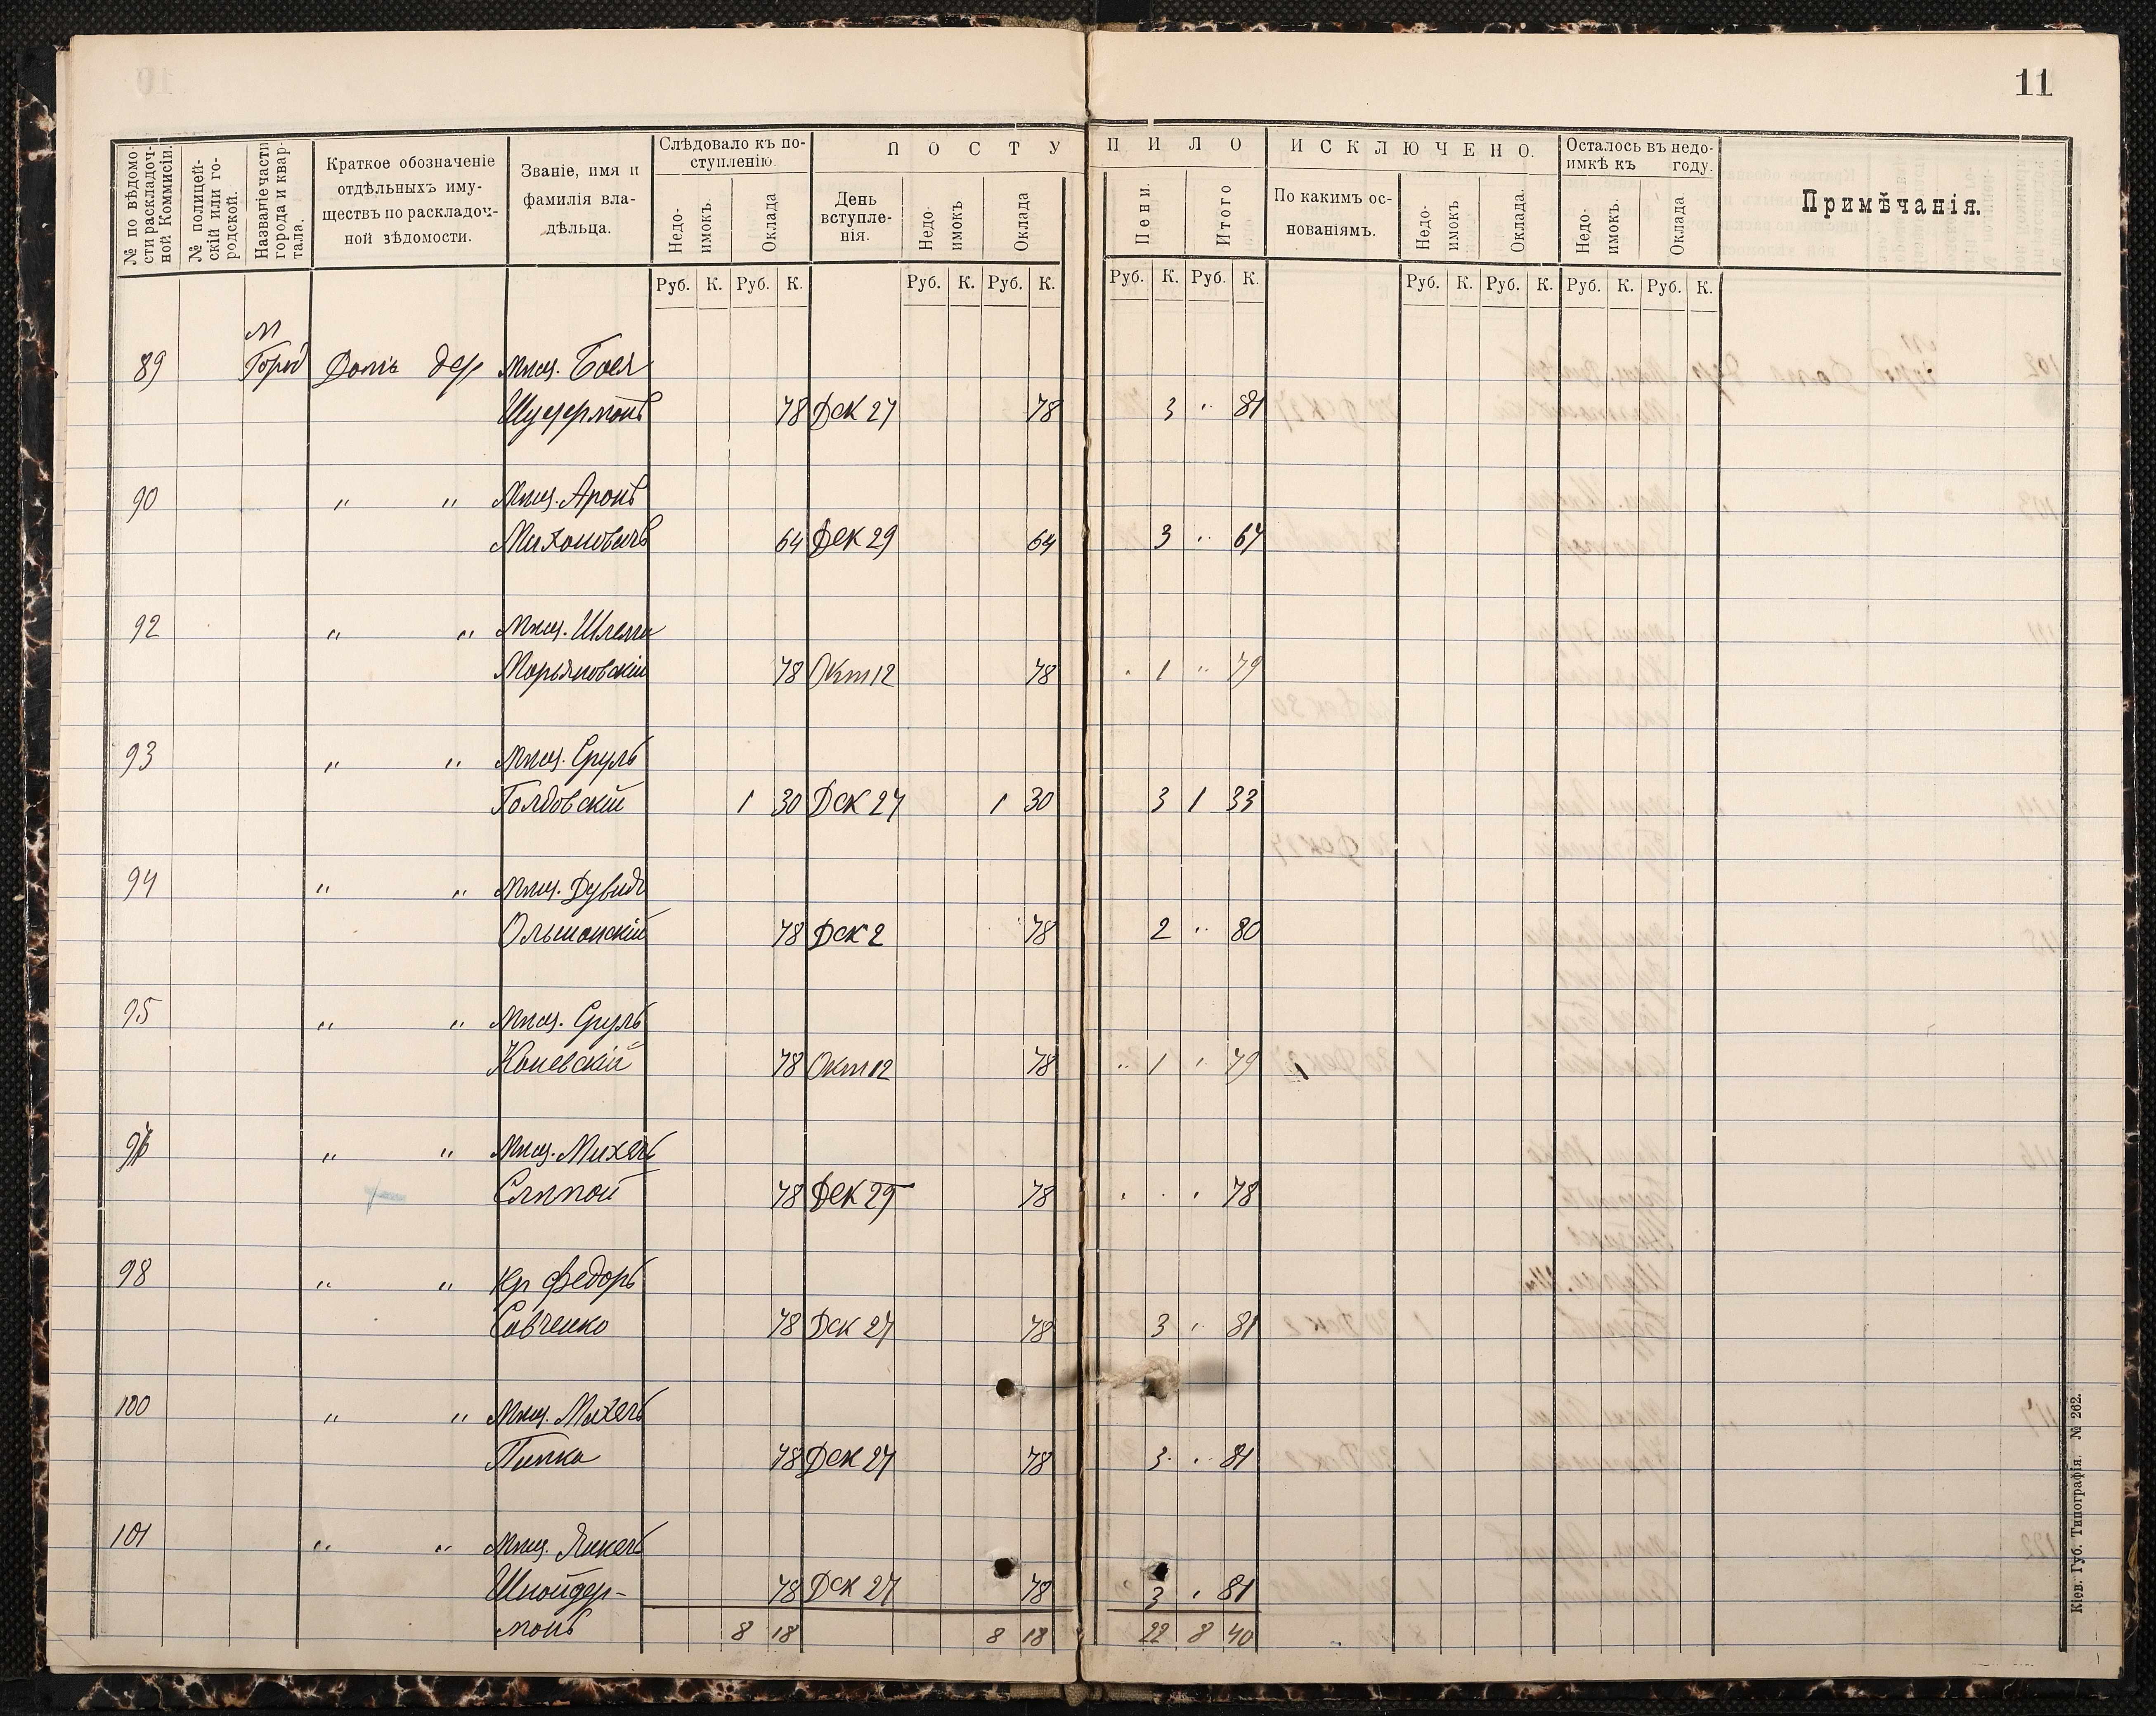 11
№ по вѣдомости раскладочной Коммисіи.
№ полицейскій или городской.
Названіе части города и квартала.
Краткое обозначеніе отдѣльныхъ имуществъ по раскладочной вѣдомости.
Званіе, имя и фамилія владѣльца.
Слѣдовало къ поступленію.
Недоимокъ. Оклада
ПОСТУПИЛО
День вступленія.
Недоимокъ Оклада Пени. Итого
ИСКЛЮЧЕНО.
По какимъ основаніямъ.
Недоимокъ Оклада.
Осталось въ недоимкѣ къ году.
Недоимокъ. Оклада
Примѣчанія.
Руб. К. Руб. К. Руб. К. Руб. К. Руб. К. Руб. К. Руб. К. Руб. К. Руб. К. Руб. К.
М
89 Город Домъ дер Мѣщ.
78 Дек 27 78 3 " 81
90 " " Мѣщ. Аронъ
64 Дек 29 64 3 " 67
92 " " Мѣщ. Шлема
Марьяновскій 78 Окт 12 78 " 1 " 79
93 " " Мѣщ. Сруль
Голдовскій 1 30 Дек 27 1 30 3 1 33
94 " " Мѣщ. Дувидъ
Ольшанскій 78 Дек 2 78 2 " 80
95 " " Мѣщ. Сруль
Каневскій 78 Окт 12 78 " 1 " 79
" " Мѣщ. Михель
Слѣпой 78 Дек 29 78 " " " 78
98 " " Кр Федоръ
Савченко 78 Дек 27 78 3 " 81
100 " " Мѣщ. Михель
78 Дек 27 78 3 " 81
101 " " Мѣщ. Янкель
Шнайдер-
78 Дек 27 78 3 " 81
манъ 8 18 8 18 22 8 40
Кіев. Губ. Типографія. № 262.